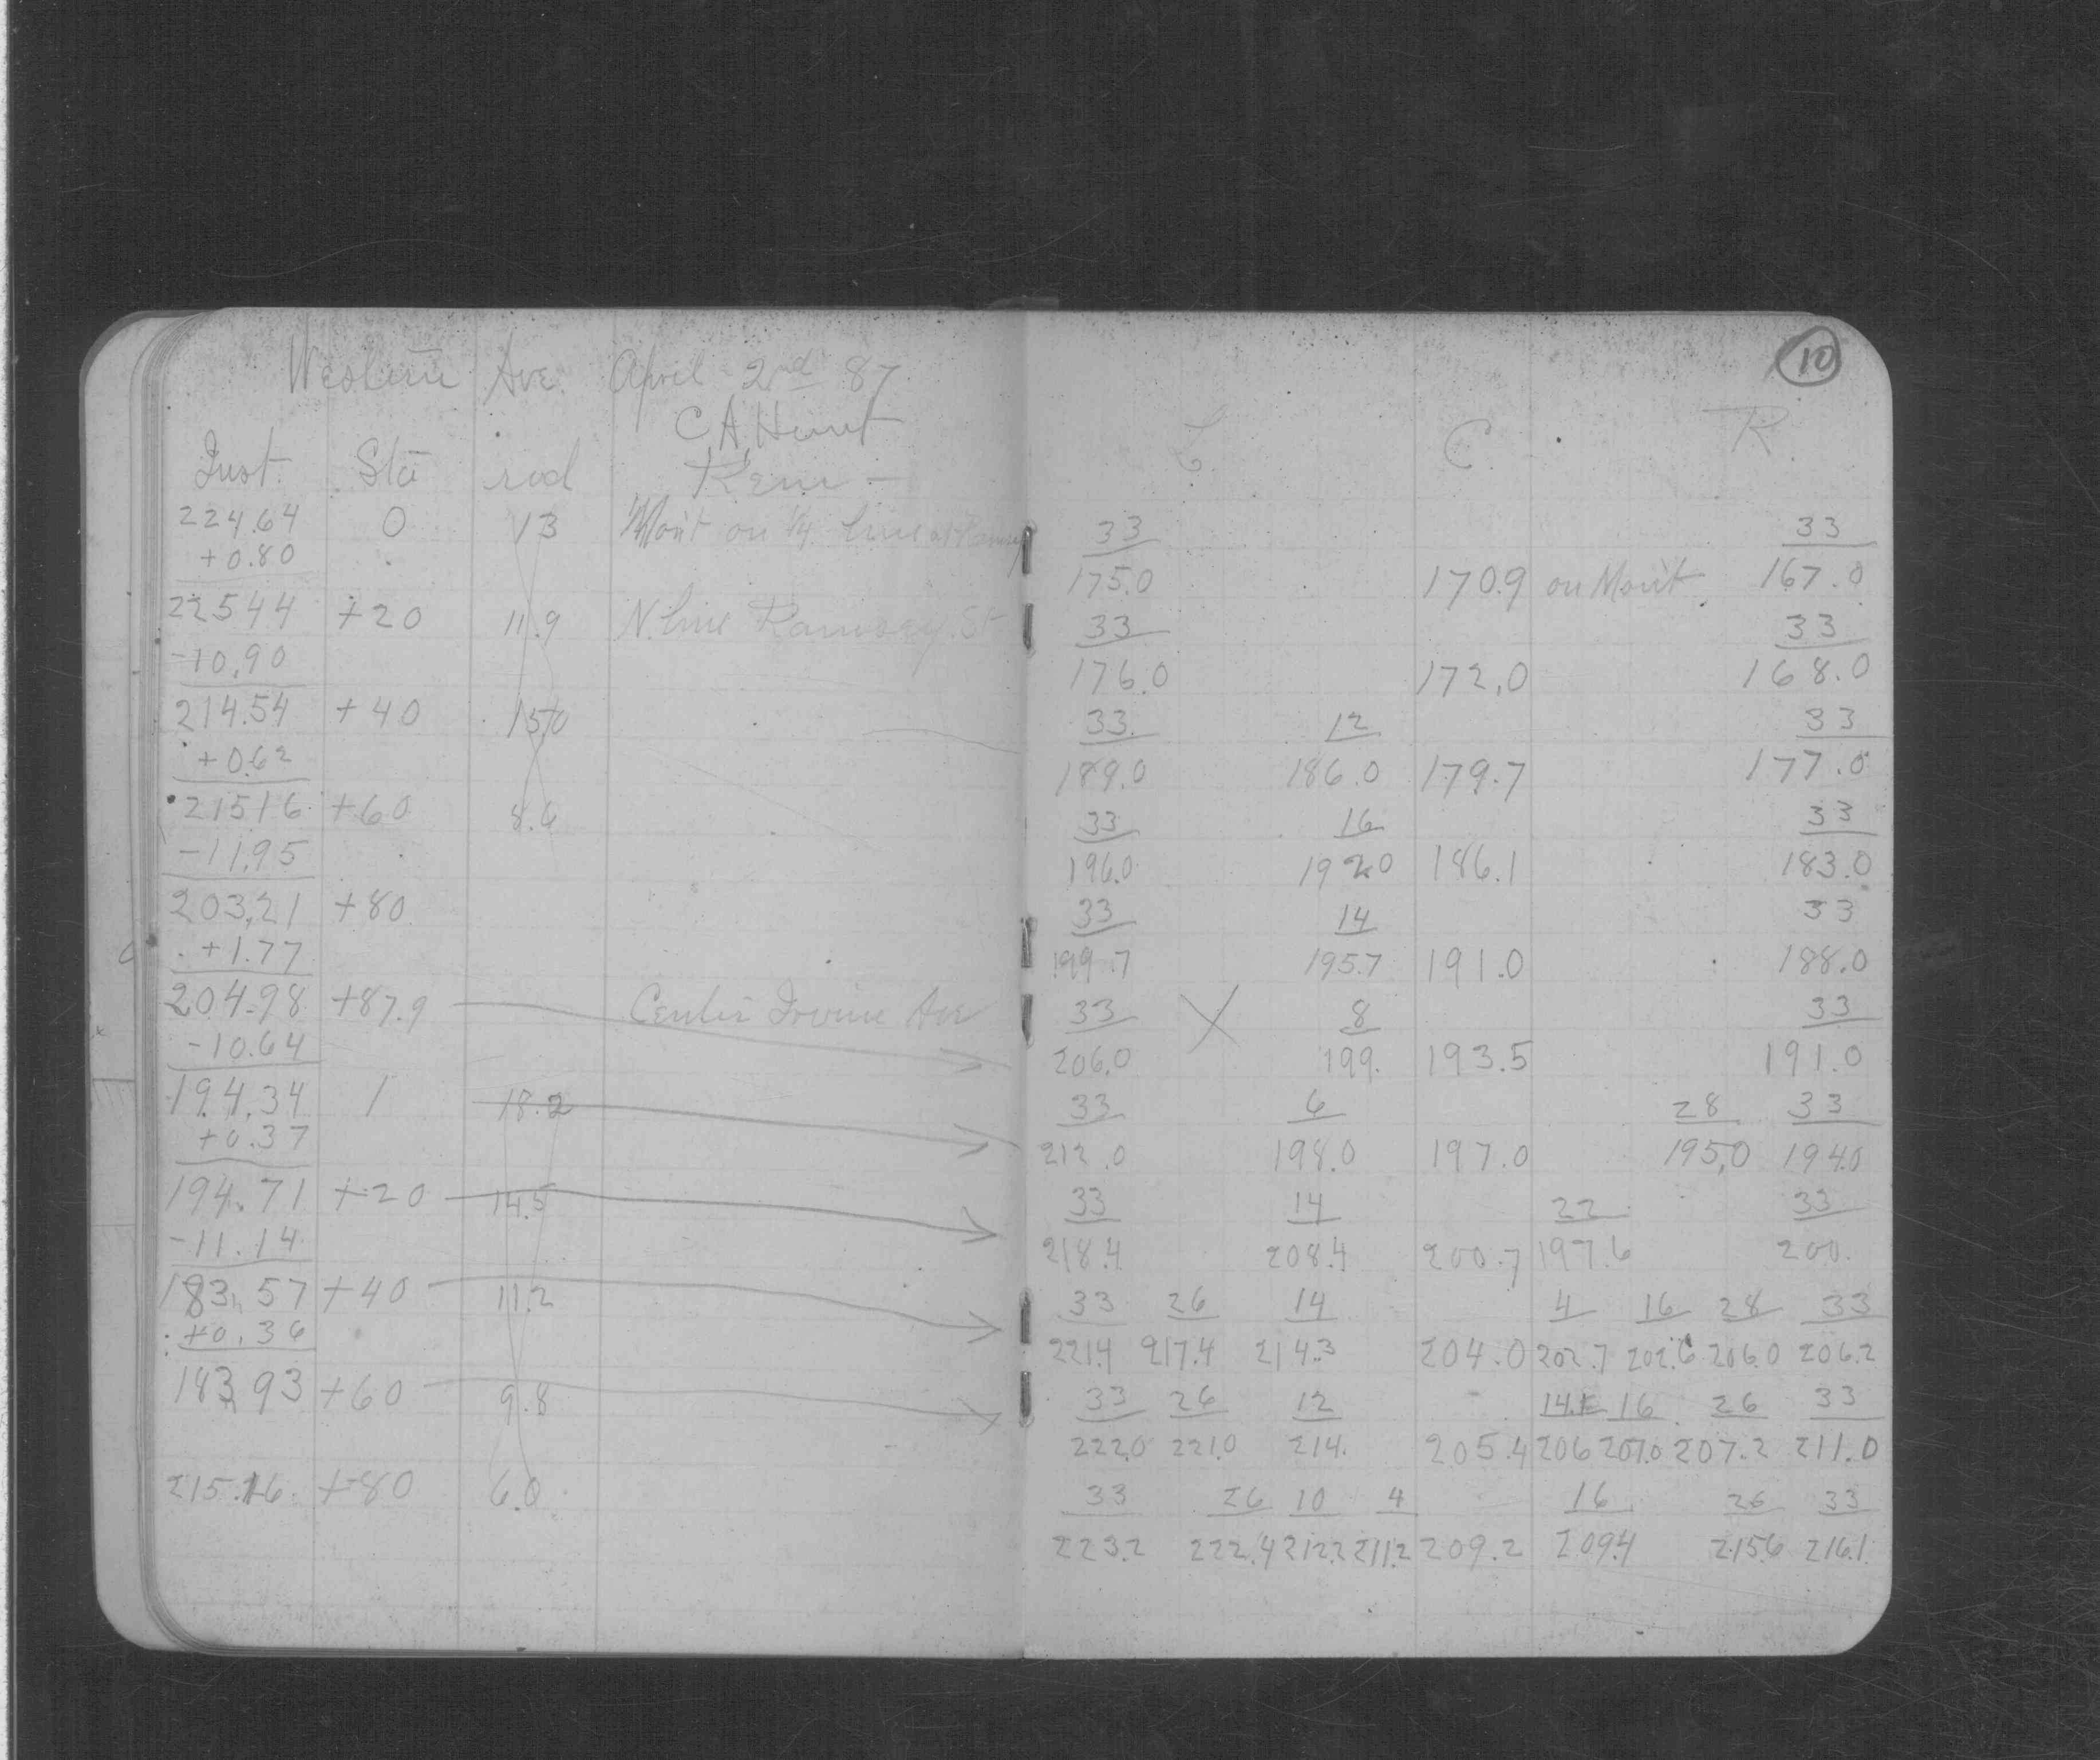 Western Ave. April 2nd 87
C A Hunt
Inst. Sta rod Rem —
224.64 0 13 Mon't on 1/4 line at Ramsey
+0.80
225.44 +20 11.9 N. line Ramsey St
-10.90
214.54 +40 15.0
+0.62
215.16 +60 8.6
-11.95
203.21 +80
+1.77
204.98 +87.9 Center Irvine Ave
-10.64
194.34 1 18.2
+0.37
194.71 +20 14.5
-11.14
183.57 +40 11.2
+0.36
183.93 +60 9.8
215.16 +80 6.0
10
L. C. R
33 33
175.0 170.9 on Mon't. 167.0
33 33
176.0 172.0 168.0
33 12 33
189.0 186.0 179.7 177.0
33 16 33
196.0 192.0 186.1 183.0
33 14 33
199.7 195.7 191.0 188.0
33 X 8 33
206.0 199. 193.5 191.0
33 6 28 33
212.0 198.0 197.0 195.0 194.0
33 14 22 33
218.4 208.4 200.7 197.6 200.
33 26 14 4 16 28 33
221.4 217.4 214.3 204.0 202.7 202.6 206.0 206.2
33 26 12 14.1 16 26 33
222.0 221.0 214. 205.4 206 207.0 207.2 211.0
33 26 10 4 16 26 33
223.2 222.4 212.2 211.2 209.2 209.4 215.6 216.1